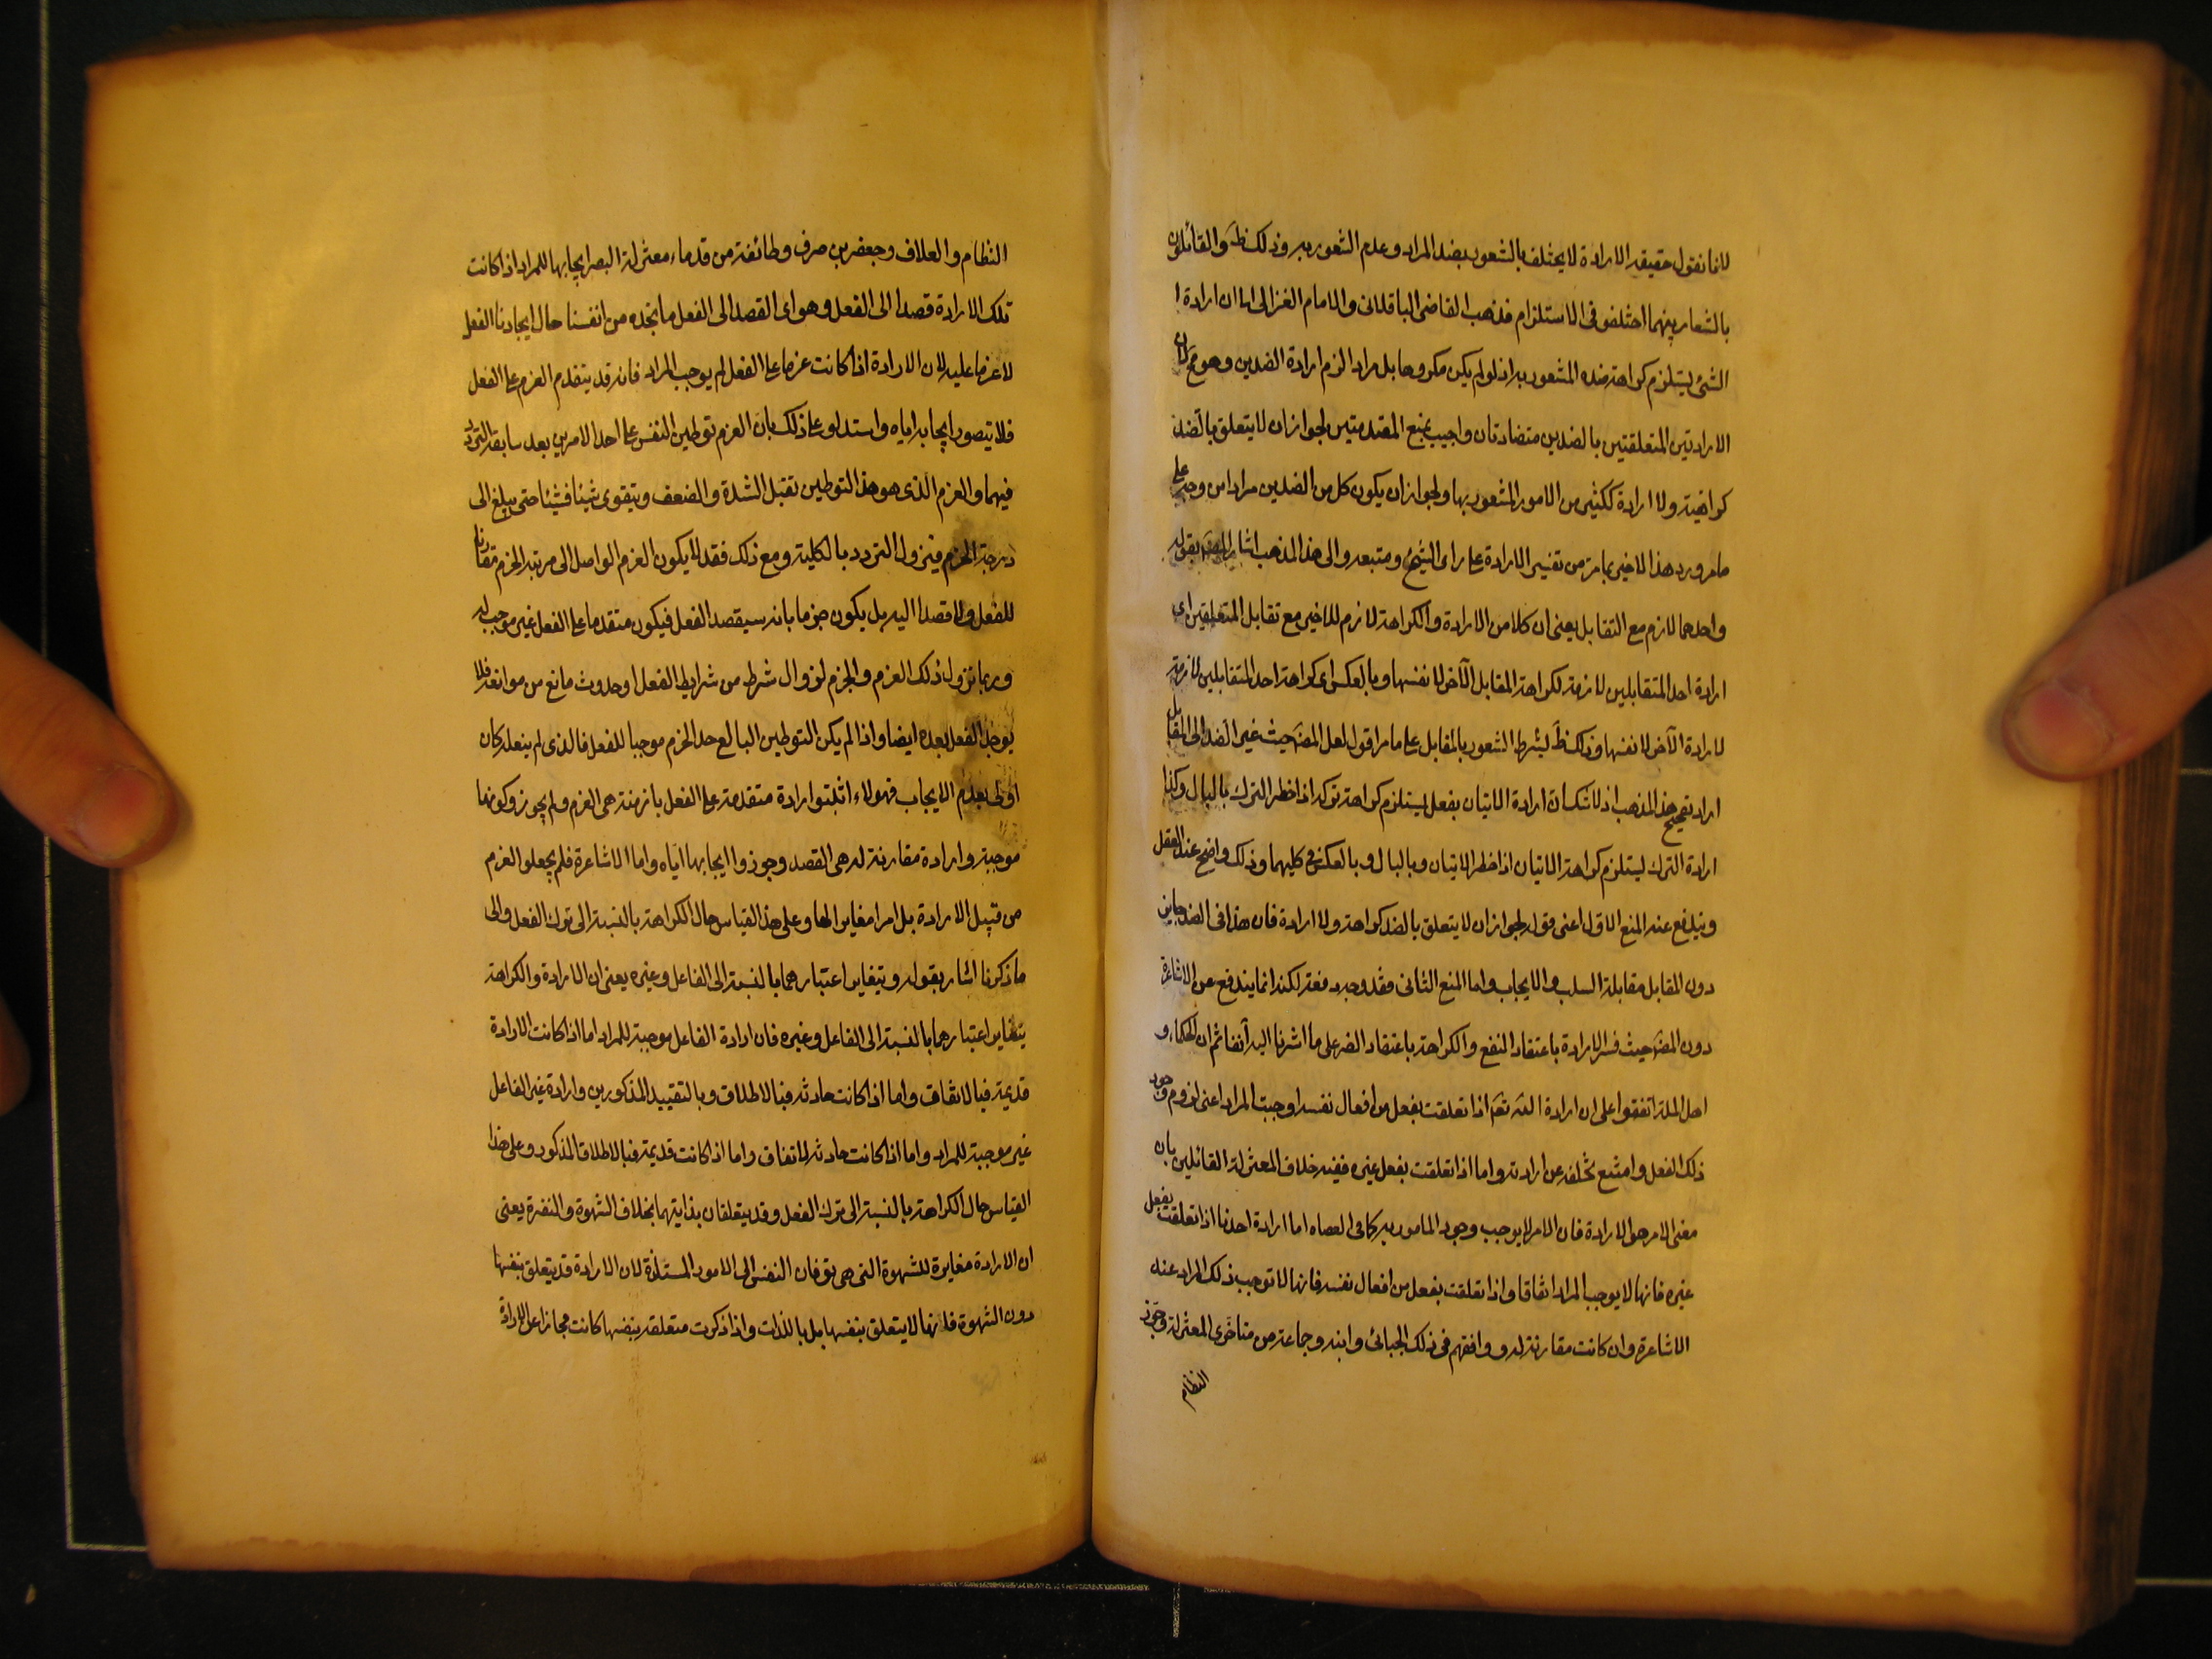 لانا نقول حقيقة الارادة لا يختلف بالشعور بضد المراد وعدم الشعور به وذلك ظ والقائلون
بالشعار بينهما اختلفو في الاستلزام فذهب القاضي الباقلاني والامام الغزالي اما ان ارادة
الشئ يستلزم كراهة ضده المشعور به اذ لو لم يكن مكروها بل مراد الزم ارادة الضدين وهو مح لان
الارادتين المتعلقتين بالضدين متضادتان واجيب بمنع المقدمتين لجواز ان لا يتعلق بالضد
كراهية ولا ارادة ككثير من الامور المشعور بها ولجواز ان يكون كل من الضدين مرادا من وجه على
ما مر ويرد هذا الاخير بما مر من تفسير الارادة على راى الشيخ ومتبعه والى هذا المذهب اشار المص بقوله
واحدهما لازم مع التقابل يعنى ان كلا من الارادة والكراهة لازم للاخير مع تقابل المتعلقين اى
ارادة احد المتقابلين لازمة لكراهة المقابل الآخر لا نفسها وبالعكس اى كراهة احد المتقابلين لازمة
لارادة الآخر لا نفسها وذلك ظ بشرط الشعور بالمقابل على ما مر اقول لعل المص حيث غير الضد الى المقابل
اراد تصحيح هذا المذهب اذ لا شك ان ارادة الاتيان بفعل يستلزم كراهة تركه اذا خطر الترك بالبال وكذا
ارادة الترك يستلزم كراهة الاتيان اذا خطر الاتيان وبالبال وبالعكس في كليهما وذلك واضح عند العقل
ويندفع عنه المنع الاول اعنى قوله لجواز ان لا يتعلق بالضد كراهة ولا ارادة فان هذا في الضد جاين
دون المقابل مقابلة السلب والايجاب واما المنع الثانى فقد وجد دفعه لكنه انما يندفع عن الاشاعرة
دون المص حيث فسر الارادة باعتقاد النفع والكراهة باعتقاد الضر على ما اشرنا اليه آنفا ثم ان الحكماء و
اهل الملة اتفقوا على ان ارادة الله تع اذا تعلقت بفعل من افعال نفسه اوجبت المراد اعنى لزوم وجود
ذلك الفعل وامتنع تخلفه عن ارادته واما اذا تعلقت بفعل غيره ففيه خلاف المعتزلة القائلين بان
معنى الامر هو الارادة فان الامر لا يوجب وجود المامور به كما في العصاه اما ارادة احدنا اذا تعلقت بفعل
غيره فانها لا يوجب المراد اتفاقا واذا تعلقت بفعل من افعال نفسه فانها لا توجب ذلك المراد عند
الاشاعرة وان كانت مقارنة له ووافقهم في ذلك الجبائى وابنه وجماعة من متاخرى المعتزلة وجوز
النظام
النظام والعلاف وجعفر بن صرف وطائفة من قدماء معتزلة البصر ايجابها للمراد اذا كانت
تلك الارادة قصدا الى الفعل وهو اى القصد الى الفعل ما نجده من انفسنا حال ايجادنا الفعل
لا عزما عليه لان الارادة اذا كانت عزما على الفعل لم يوجب المراد فانه قد يتقدم العزم على الفعل
فلا تيصور ايجابه اياه واستدلو على ذلك بان العزم توطين النفس على احد الامرين بعد سابقة التردد
فيهما والعزم الذى هو هذا التوطين تقبل الشدة والضعف ويتقوى شيئا فشيئا حتى يبلغ الى
درجة الجزم فيزول التردد بالكلية ومع ذلك فقد لا يكون العزم الواصل الى مرتبة الجزم مقارنا
للفعل ولا قصدا اليه بل يكون جزما بانه سيقصد الفعل فيكون متقدما على الفعل غير موجب له
وربما تزول ذلك العزم والجزم لزوال شرط من شرايط الفعل او حدوث مانع من موانعه فلا
يوجد الفعل بعده ايضا واذا لم يكن التوطين البالع حد الجزم موجبا للفعل فالذى لم يبلغه كان
اولى بعدم الايجاب فهولاء اثبتوا ارادة متقدمة على الفعل بازمنة هى العزم ولم يجوزو كونها
موجبة وارادة مقارنة له هى القصد وجوزوا ايجابها اياه واما الاشاعرة فلم يجعلو العزم
من قبيل الارادة بل امرا مغايرا لها وعلى هذا القياس حال الكراهة بالنسبة الى ترك الفعل والى
ما ذكرنا اشار بقوله ويتغاير اعتبارهما بالنسبة الى الفاعل وغيره يعنى ان الارادة والكراهة
يتغاير اعتبارهما بالنسبة الى الفاعل وغيره فان ارادة الفاعل موجبة للمراد اما اذا كانت الارادة
قديمة فبالاتفاق واما اذا كانت حادثة فبالاطلاق وبالتقييد المذكورين وارادة غير الفاعل
غير موجبة للمراد واما اذا كانت حادثه فالاتفاق واما اذا كانت قديمة فبالاطلاق المذكور وعلى هذا
القياس حال الكراهة بالنسبة الى ترك الفعل وقد يتعلقان بذايتهما بخلاف الشهوة والنفرة يعنى
ان الارادة مغايرة للشهوة التى هى توقان النفس الى الامور المستلذة لان الارادة قد يتعلق بنفسها
دون الشهوة فانها لا يتعلق بنفسها بل باللذات واذا ذكرت متعلقة بنفسها كانت مجازا عن الارادة